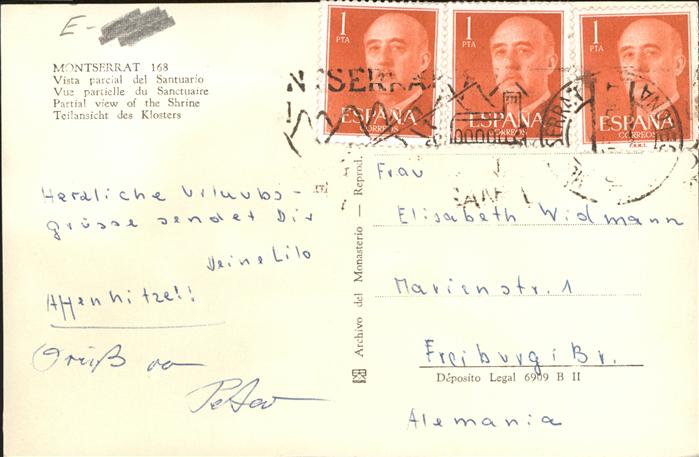 E-
MONTSERRAT 168
Vista parcial del Santuario
Vue partielle du Sanctuaire
Partial view of the Shrine
Teilansicht des Klosters
Herzliche Urlaubs-
grüsse sendet Dir
Deine Lilo
Affenhitze!!
Gruß von
Peter
Archivo del Monasterio — Reprod.
1
PTA
ESPAÑA
CORREOS
1
PTA
ESPAÑA
CORREOS
1
PTA
ESPAÑA
CORREOS
F.N.M.T.
Frau
Elisabeth Widmann
Marienstr. 1
Freiburg i Br.
Déposito Legal 6909 B II
Alemania